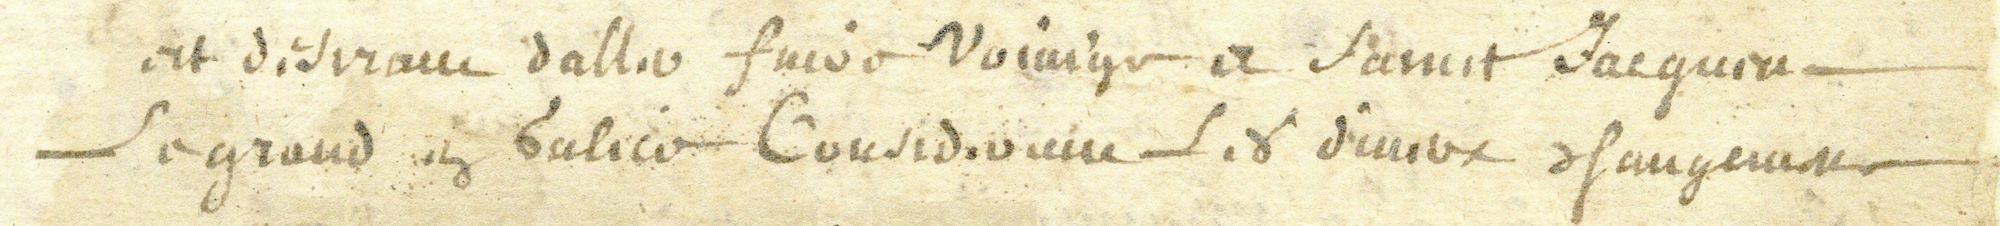 et desirant daller faire voiaige a sainct Jacques
Le grand en Galice Considerant Les divers changemens